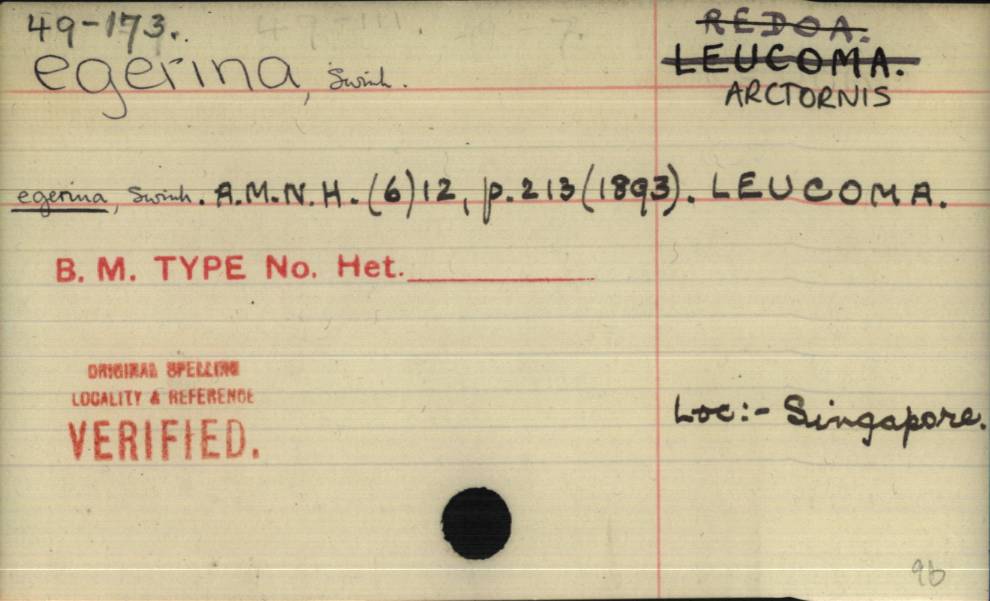 49-173.
REDOA.
egerina, Swinh.
LEUCOMA.
ARCTORNIS
egerina, Swinh. A.M.N.H. (6) 12, p. 213 (1893). LEUCOMA.
B. M. TYPE No. Het.
ORIGINAL SPELLING
LOCALITY & REFERENCE
VERIFIED.
Loc:- Singapore.
96